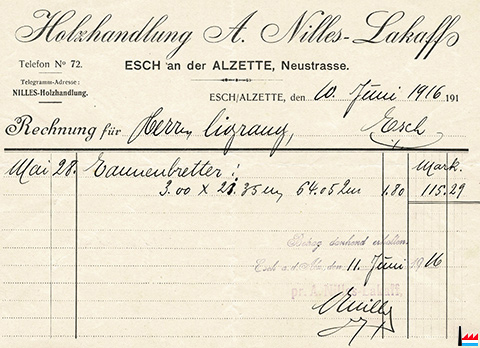 Holzhandlung A. Nilles-Lakaff
Telefon Nº 72.
ESCH an der ALZETTE, Neustrasse.
Telegramm-Adresse:
NILLES-Holzhandlung.
ESCH/ALZETTE, den 10. Juni 1916 191
Rechnung für Herrn Ligrang, Esch
Mark
Mai 28. Tannenbretter:
3.00 x 21.35 m 64.05 2m 1.80 115.29
Betrag dankend erhalten.
Esch a. d. Alz. den 11. Juni 1916
pr. A. Nilles-Lakaff,